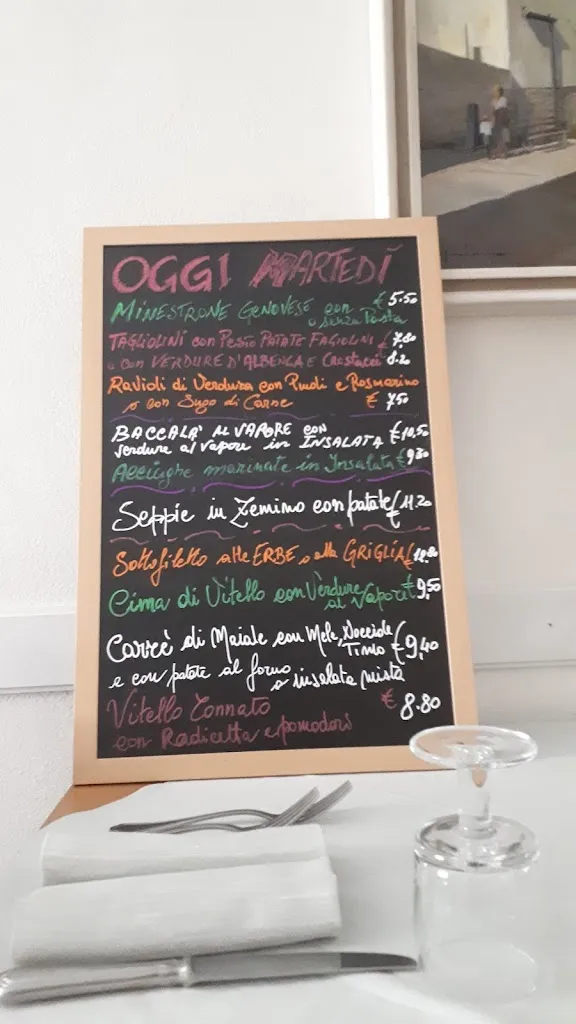 OGGI MARTEDÌ
MINESTRONE GENOVESE con € 5.50
o senza Pasta
TAGLIOLINI con Pesto PATATE FAGIOLINI € 7.80
o con VERDURE D'ALBENGA E Crostacei 8.20
Ravioli di Verdura con Pinoli e Rosmarino
o con Sugo di Carne € 7,50
BACCALA' AL VAPORE con €10,50
verdure al vapore in INSALATA
Acciughe marinate in Insalata €
Seppie in Zemino con patate € 11.20
Sottofiletto alle ERBE o alla GRIGLIA €
Cima di Vitello con Verdure € 9,50
al Vapore
Carrè di Maiale con Mele, Nocciole € 9,40
Timo
e con patate al forno o insalata mista
Vitello Tonnato € 8.80
con Radicetta e pomodori